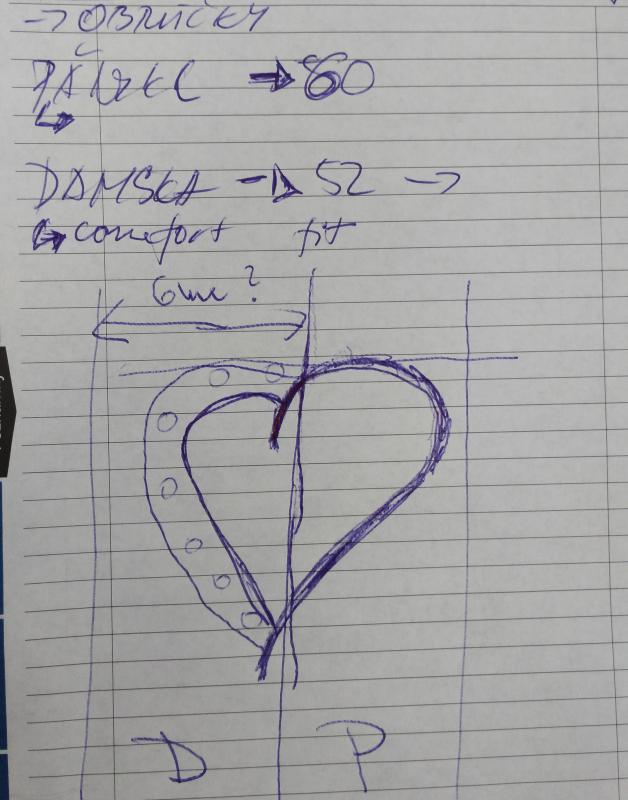 → OBRUČKY
PÁNSKÁ → 60
DÁMSKA → 52 →
↳ comfort fit
6mm ?
D P